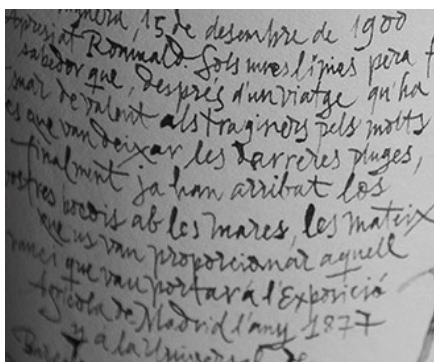 15 de desembre de 1900
Apreciat Romuald: Sols unes línies pera
sabedor que, després d'un viatge qu'ha
mar de valent als traginers pels molts
es que van deixar les darreres pluges,
finalment ja han arribat los
vostres bocois ab les mares, les mateix
que us van proporcionar aquell
ranci que vau portar á l'Exposició
Agícola de Madrid l'any 1877
y á la Universal de